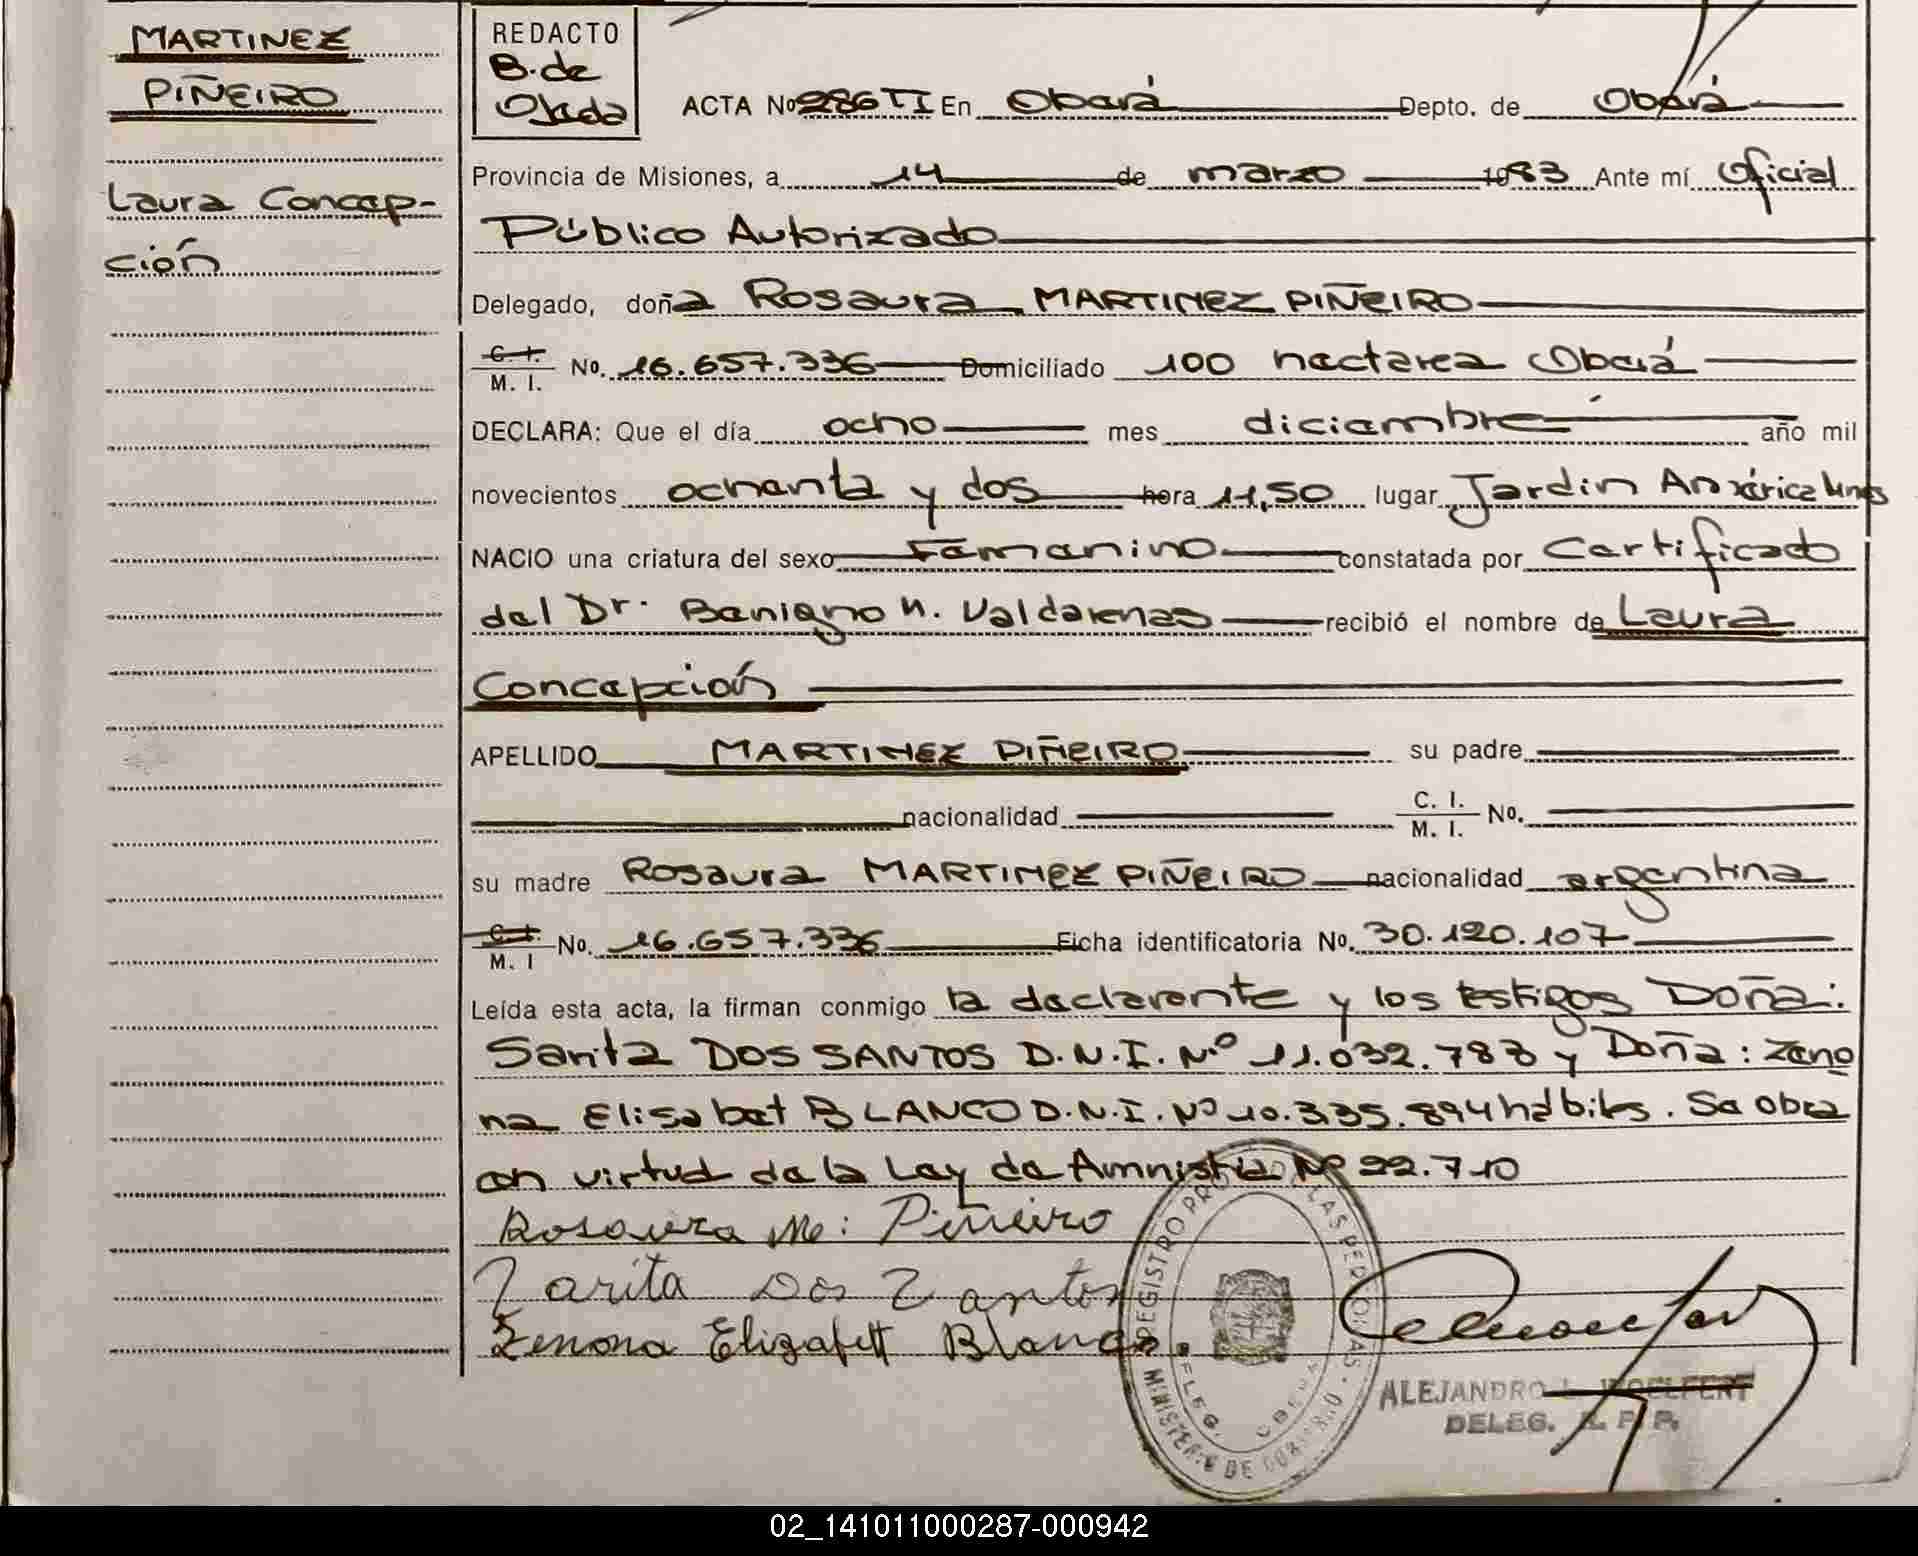 MARTINEZ
PIÑEIRO
Laura Concep-
ción
REDACTO
B. de
Ojeda
ACTA No 286 TI En Oberá Depto. de Oberá
Provincia de Misiones, a 14 de marzo 1983 Ante mí Oficial
Público Autorizado
Delegado, doña Rosaura MARTINEZ PIÑEIRO
C. I. / M. I. No. 16.657.336 Domiciliado 100 hectarea Oberá
DECLARA: Que el día ocho mes diciembre año mil
novecientos ochenta y dos hora 11,50 lugar Jardin América
NACIO una criatura del sexo Femenino constatada por Certificado
del Dr. Benigno N. Valdarenas recibió el nombre de Laura
Concepción
APELLIDO MARTINEZ PIÑEIRO su padre
nacionalidad C. I. / M. I. No.
su madre Rosaura MARTINEZ PIÑEIRO nacionalidad argentina
C. I. / M. I No. 16.657.336 Ficha identificatoria No. 30.120.107
Leída esta acta, la firman conmigo la declarante y los testigos Doña:
Sarita DOS SANTOS D.N.I. Nº 11.032.783 y Doña: Zeno
na Elisabet BLANCO D.N.I. Nº 10.335.894 hábiles. Se obra
en virtud de la Ley de Amnistia Nº 22.710
Rosaura M: Piñeiro
Zarita Dos Zantos
Zenona Elizabett Blanco
REGISTRO PRO LAS PERSONAS
MINISTERIO DE GOBIERNO
DELEG. OBERA
ALEJANDRO L. WOELFERT
DELEG. R. P. P.
02_141011000287-000942